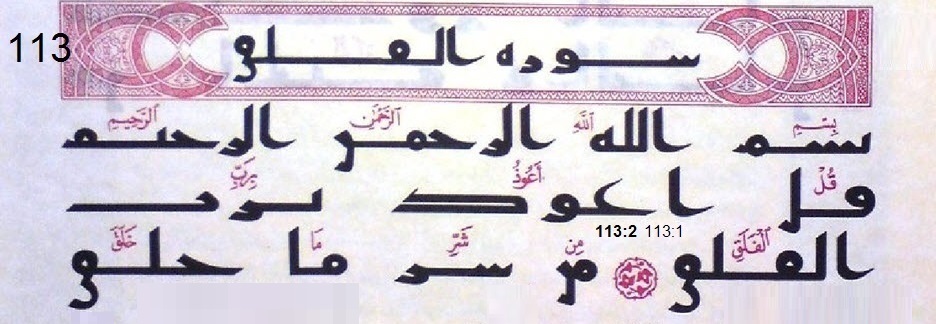 113
سوره الفلق
بِسْمِ اللَّهِ الرَّحْمَٰنِ الرَّحِيمِ
بسم الله الرحمن الرحيم
قُلْ أَعُوذُ بِرَبِّ
قل اعوذ برب
113:2 113:1
الْفَلَقِ مِن شَرِّ مَا خَلَقَ
الفلق من شر ما خلق